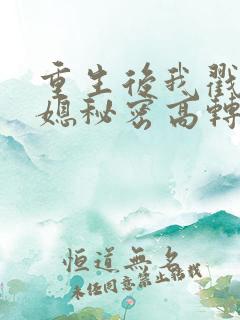 重生後我戳
媳秘密高轉
恒道無名
未經同意禁止轉載